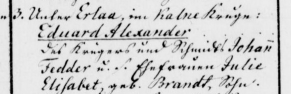 3. Unter Erlaa, im Kalne Kruge:
Eduard Alexander
des Krügers und Schmids Johann
Fedder u. s. Ehefrauen Julie
Elisabet, geb. Brandt, Sohn.